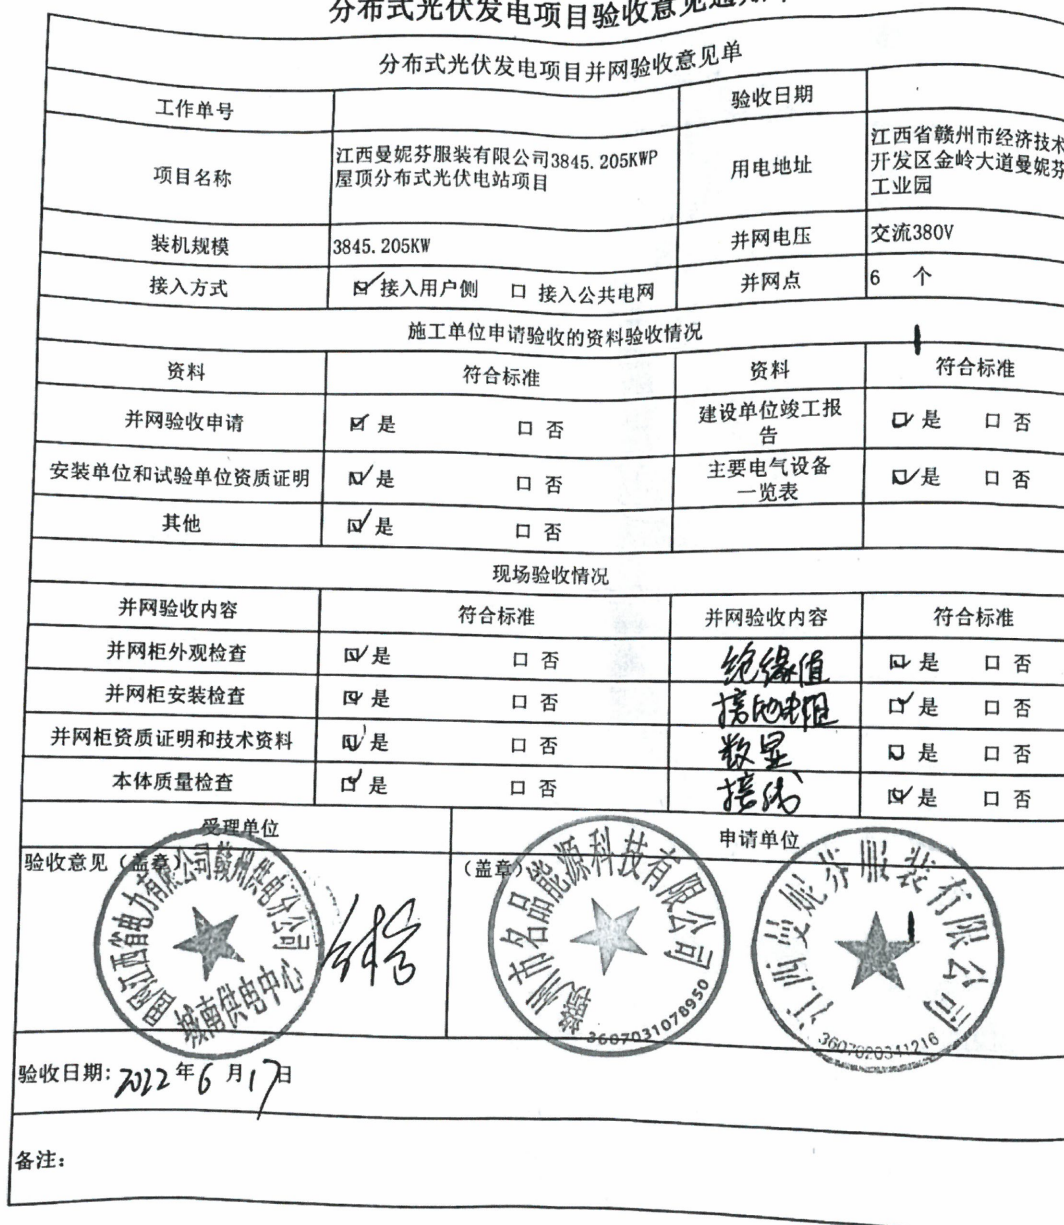 分布式光伏发电项目验收意见通
分布式光伏发电项目并网验收意见单
工作单号 验收日期
项目名称 江西曼妮芬服装有限公司3845.205KWP
屋顶分布式光伏电站项目
用电地址 江西省赣州市经济技术
开发区金岭大道曼妮芬
工业园
装机规模 3845.205KW 并网电压 交流380V
接入方式 ☑ 接入用户侧 口 接入公共电网 并网点 6 个
施工单位申请验收的资料验收情况
资料 符合标准 资料 符合标准
并网验收申请 ☑ 是 口 否 建设单位竣工报
告 ☑ 是 口 否
安装单位和试验单位资质证明 ☑ 是 口 否 主要电气设备
一览表 ☑ 是 口 否
其他 ☑ 是 口 否
现场验收情况
并网验收内容 符合标准 并网验收内容 符合标准
并网柜外观检查 ☑ 是 口 否 绝缘值 ☑ 是 口 否
并网柜安装检查 ☑ 是 口 否 接地电阻 ☑ 是 口 否
并网柜资质证明和技术资料 ☑ 是 口 否 数显 ☑ 是 口 否
本体质量检查 ☑ 是 口 否 接线 ☑ 是 口 否
受理单位 申请单位
验收意见（盖章） （盖章）
国网江西省电力有限公司赣州供电分公司
城南供电中心
合格
赣州市名品能源科技有限公司
3607031078950
江西曼妮芬服装有限公司
3607020341216
验收日期: 2022 年 6 月 17 日
备注: